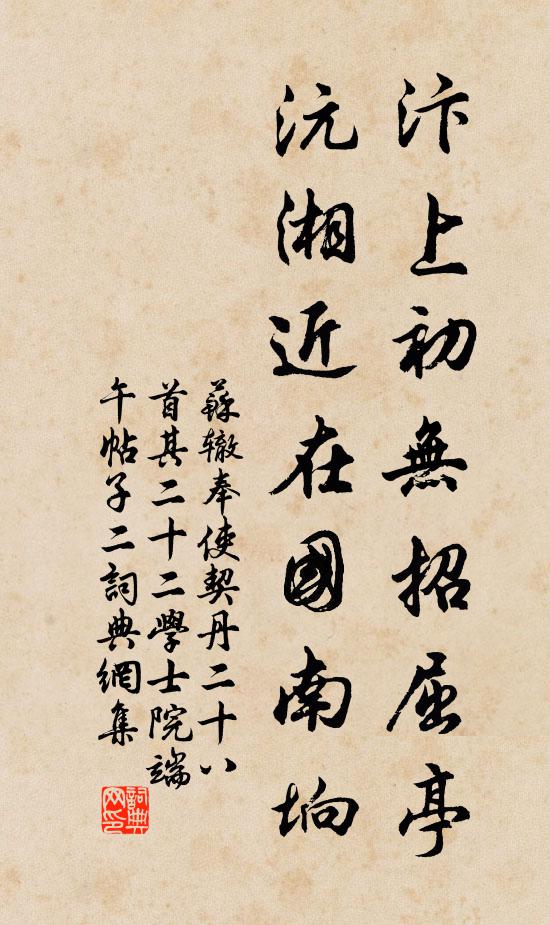 汴上初無招屈亭
沅湘近在國南坰
蘇轍奉使契丹二十八
首其二十二學士院端
午帖子二詞典網集
詞典
网印